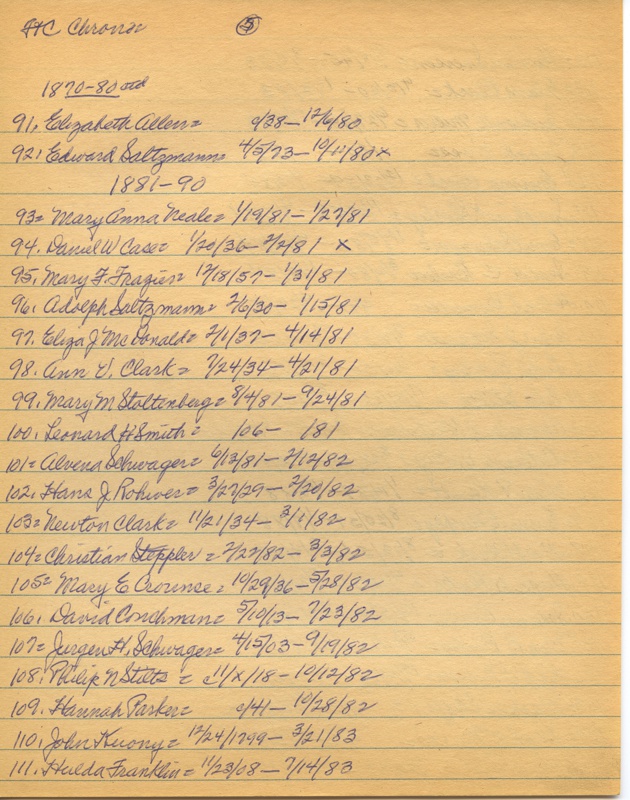 HC Chrono= ⑤
1870-80 ctd
91. Elizabeth Allen= c/38- 12/6/80
92. Edward Saltzmann= 4/5/73-10/11/80x
1881-90
93= Mary Anna Neale= 1/19/81-1/27/81
94. Daniel W Case= 1/20/36-2/2/81 x
95. Mary F. Frazier= 12/18/57-1/31/81
96. Adolph Saltzmann= 2/6/30- 1/15/81
97. Eliza J McDonald= 2/1/37- 4/14/81
98. Ann V. Clark= 7/24/34-4/21/81
99. Mary M Stoltenberg= 8/4/81-9/24/81
100. Leonard H Smith= /06- /81
101= Alvena Schwager= 6/13/81-2/12/82
102. Hans J. Rohwer= 3/27/29-2/20/82
103= Newton Clark= 11/21/34-3/1/82
104= Christian Steppler= 2/22/82-3/3/82
105= Mary E Crounse= 10/29/36-5/28/82
106. David Conchman= 5/10/13- 7/23/82
107= Jurgen H. Schwager= 4/15/03-9/19/82
108. Philip N Stilts = c11/x/18-10/12/82
109. Hannah Parker= c/41- 10/28/82
110. John Kuony= 12/24/1799-3/21/83
111. Hulda Franklin= 11/23/08-7/14/83